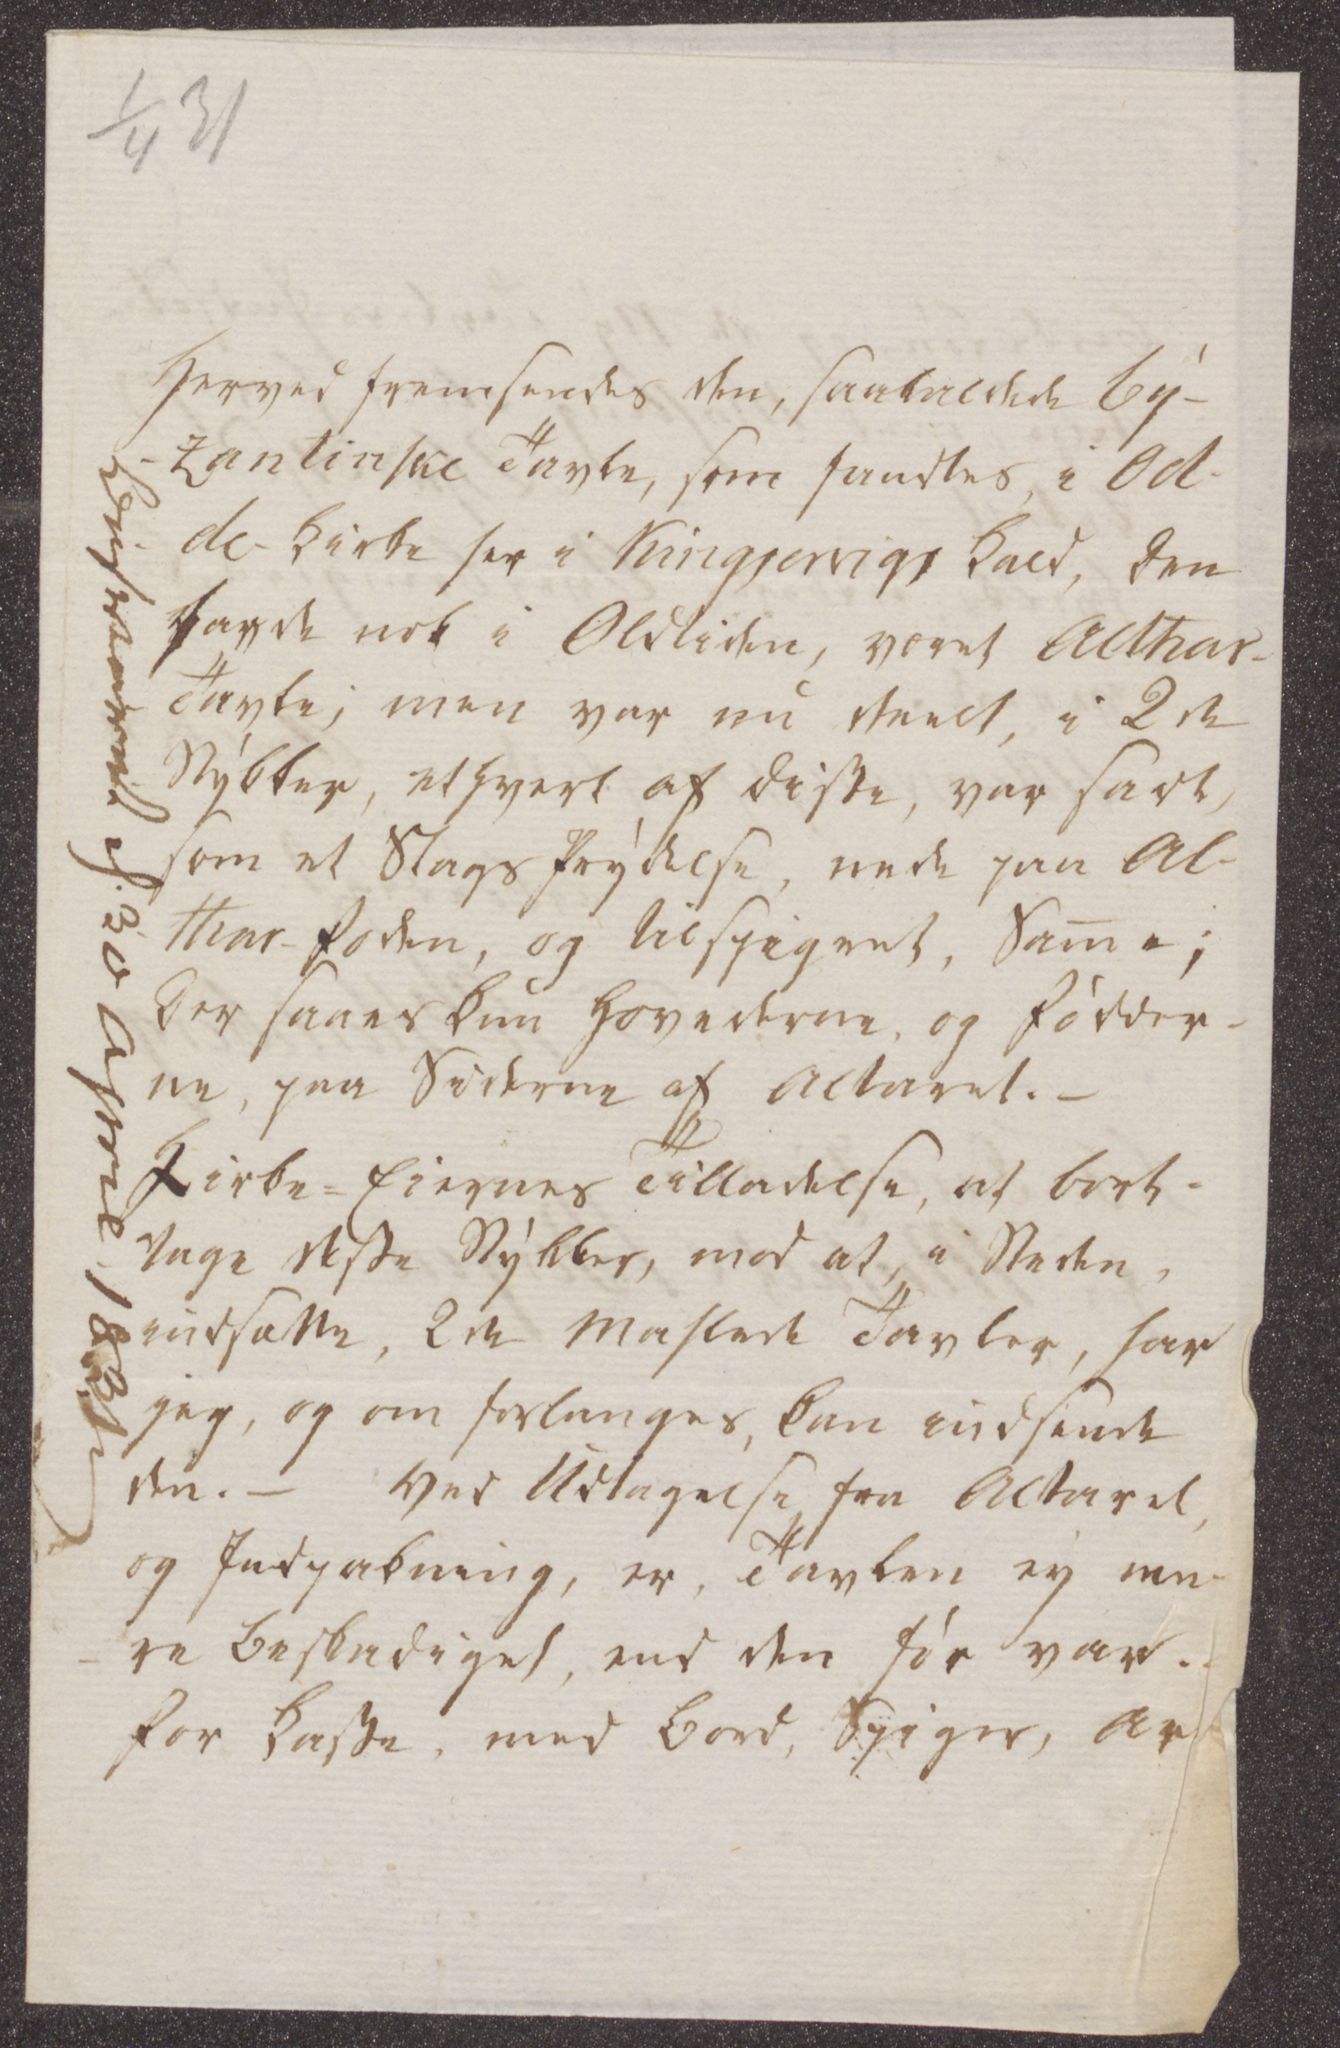 1/4 31
Herved fremsendes den, saakaldede By-
-zantinske Tavle, som fandtes, i Od-
de-Kirke her i Kingservigs Kald, den
havde nok i Oldtiden, været Althar-
Tavle; men var nu deelt, i 2de
Stykker, ethvert af disse, var satt,
som et Slags Prydelse, nede paa Al-
thar-foden, og tilspigret, Sam̅e;
Der saaes kun Hovederne, og Fødder-
ne, paa Siderne af Altaret. —
Kirke-Eiernes Tilladelse, at bort-
tage disse Stykker, mod at, i Steden,
indsætte, 2de Maslede Tavler, har
jeg, og om forlanges, kan indsende
den. — Ved Udtagelse fra Altaret,
og Indpakning, er, Tavlen ey me-
re beskadiget, end den før var.
For Kasse, med Bord, Spiger, Ar-
30 April 1831